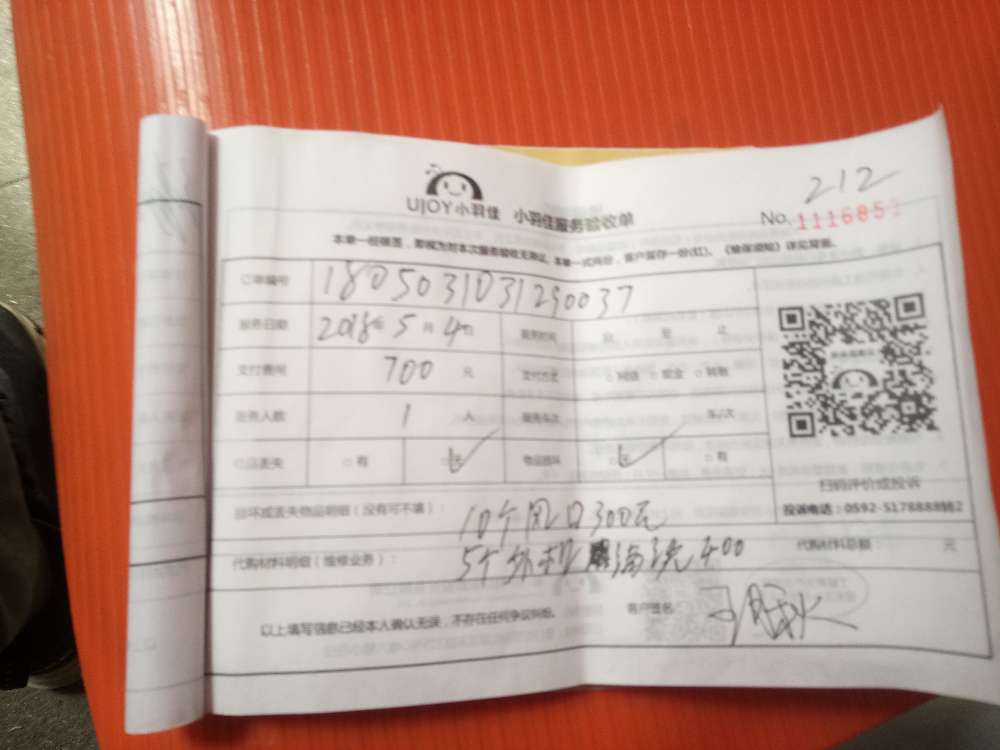 212
UJOY小羽佳 小羽佳服务验收单
No. 1116851
本单一经确签，即视为对本次服务验收无异议。本单一式两份，客户留存一份(红)、《维保须知》详见背面。
订单编号 1805031031290037
服务日期 2018年 5月 4日 服务时间 自 至 止
支付费用 700 元 支付方式 □网络 □现金 □转账
服务人数 1 人 服务车次 车/次
物品丢失 □有 □无 物品损坏 □无 □有
扫码评价或投诉
投诉电话：0592-5178888转2
损坏或丢失物品明细（没有可不填）： 10个风口300元
代购材料明细（维修业务）： 5个外机 清洗400
代购材料总额： 元
以上填写信息已经本人确认无误，不存在任何争议纠纷。 客户签名：